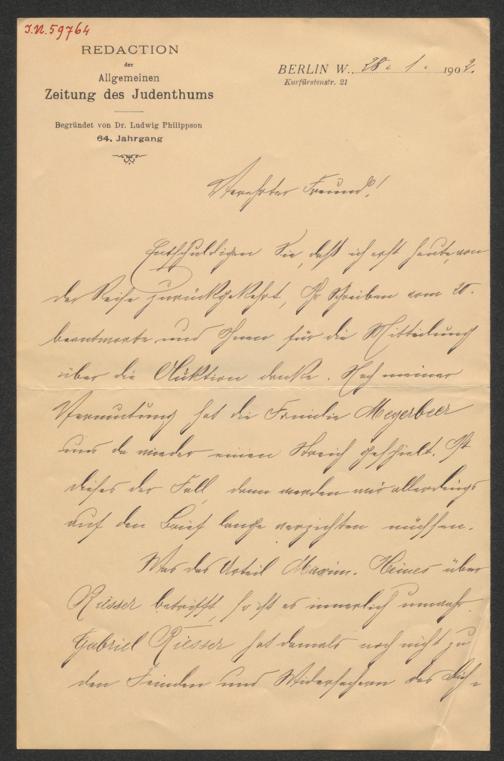 I.N. 59764
REDACTION
der
Allgemeinen
Zeitung des Judenthums
Begründet von Dr. Ludwig Philippson
64. Jahrgang
BERLIN W., 28. 1. 1902.
Kurfürstenstr. 21
Verehrter Freund!
Entschuldigen Sie, daß ich erst heute, von
der Reise zurückgekehrt, Ihr Schreiben vom 20.
beantworte und Ihnen für die Mitteilung
über die Auktion danke. Nach meiner
Vermutung hat die Familie Meyerbeer
uns da wieder einen Streich gespielt. Ist
dieses der Fall, dann werden wir allerdings
auf den Brief lange verzichten müssen.
Was das Urteil Maxim. Heines über
Riesser betrifft, so ist es innerlich unwahr.
Gabriel Riesser hat damals noch nicht zu
den Feinden und Widersachern des Dich-